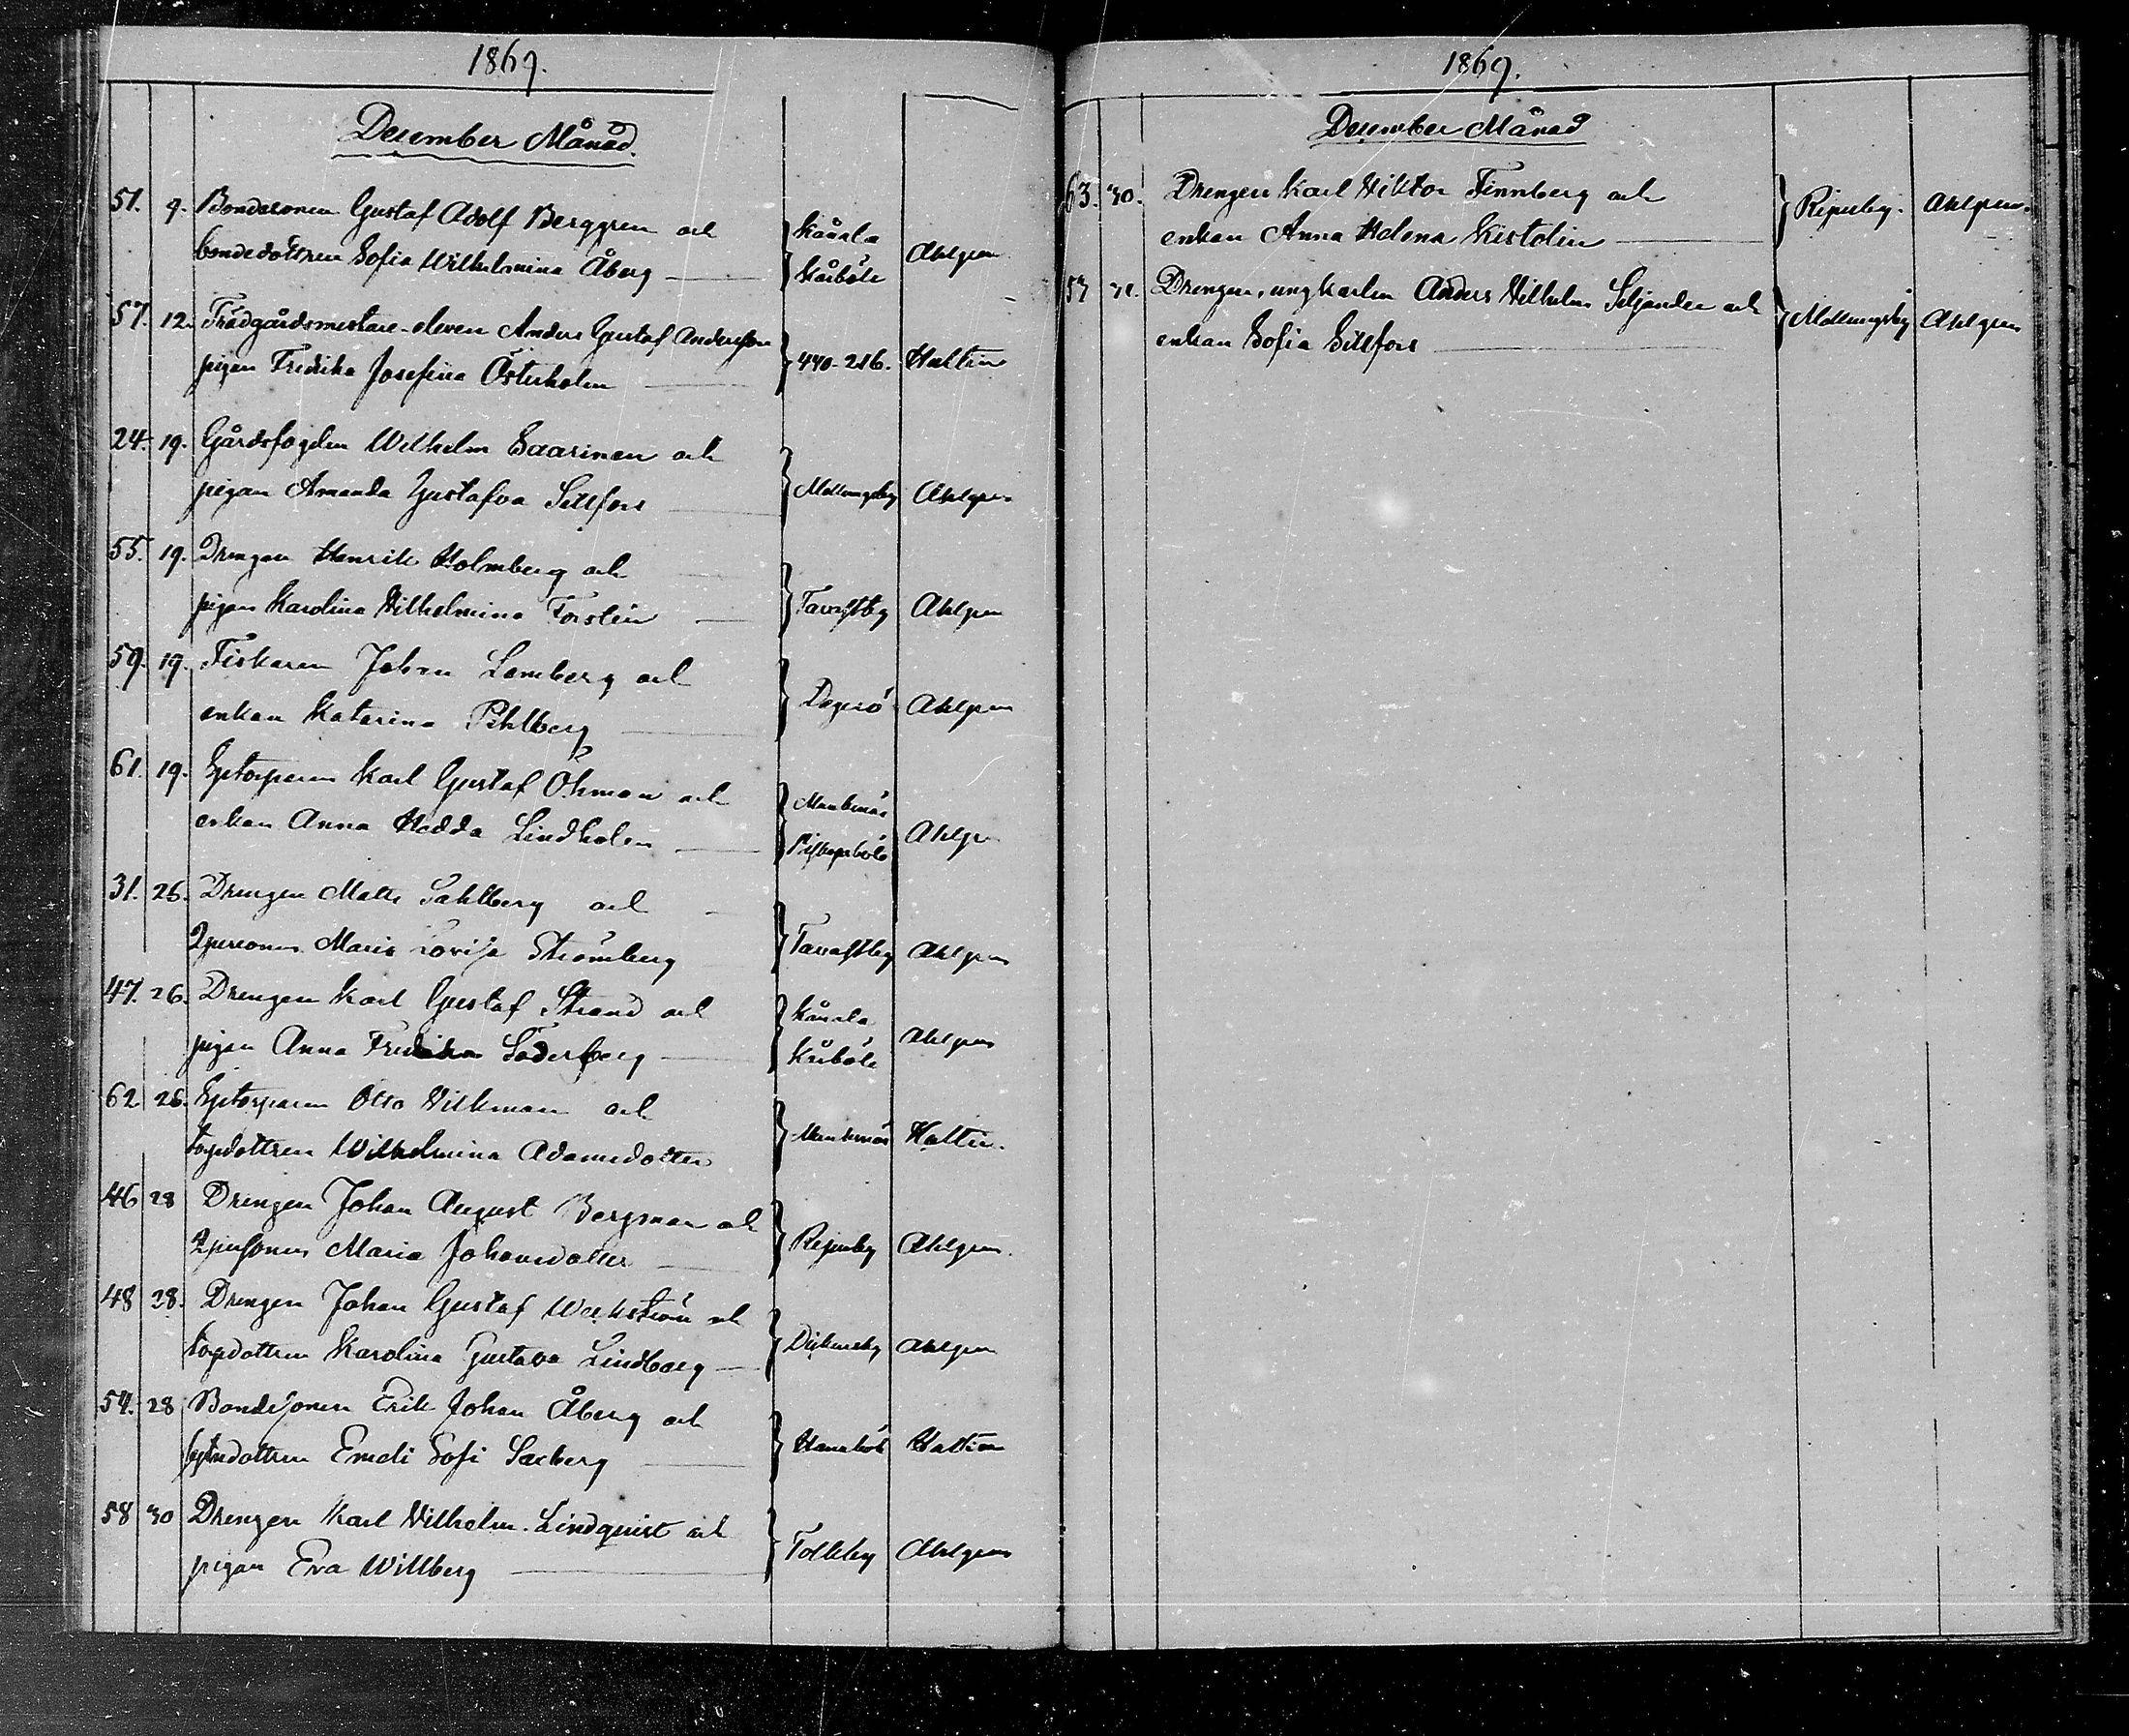 1869.
December Månad.
51. 9. Bondesonen Gustaf Adolf Berggren och
bondedottren Sofia Wilhelmina Åberg
Kånala
Kårböle
Ahlgren
57. 12. Trädgårdsmestare-eleven Anders Gustaf Andersson
pigan Fredrika Josefina Österholm
440-216. Hultin
24. 19. Gårdsfogden Wilhelm Saarinen och
pigan Amanda Gustafva Sillfors
Mellungsby Ahlgren
55. 19. Drengen Henrik Holmberg och
pigan Karolina Vilhelmina Forstén
Tavastby Ahlgren
59. 19. Fiskaren Johan Lemberg och
enkan Katarina Pihlberg
Degerö Ahlgren
61. 19. Karl Gustaf Öhman och
enkan Anna Hedda Lindholm
Munksnäs
Ahlgren
31. 26. Drengen Matts Sahlberg och
Qpersonen Maria Lovisa Strömberg
Tavastby Ahlgren
47. 26. Drengen Karl Gustaf Strand och
pigan Anna Fredrika Söderberg
Kånala
Kårböle
Ahlgren
62 26. Otto Vilkman och
torpdottren Wilhelmina Adamsdotter
Munksnäs Hultin.
46 28 Drengen Johan August Bergman och
Qpersonen Maria Johansdotter
Ripusby Ahlgren.
48 28. Drengen Johan Gustaf Weckström och
torpdottren Karolina Gustava Lindberg
Dickursby Ahlgren
54. 28 Bondesonen Erik Johan Åberg och
Emeli Sofi Sacberg
Hanaböle Hultin
58 30 Drengen Karl Vilhelm Lindquist och
pigan Eva Willberg
Tolkby Ahlgren
1869.
December Månad
63. 30. Drengen Karl Viktor Finnberg och
enkan Anna Helena Kistolin
Ripusby. Ahlgren.
53 31. Drengen, ungkarlen Anders Vilhelm Seljander och
enkan Sofia Sillfors
Mellungsby Ahlgren